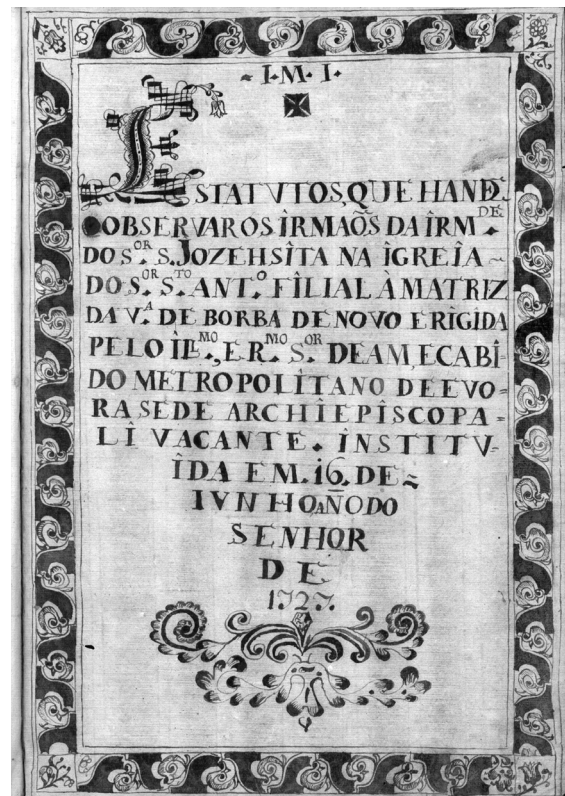 ~ I·M·I·
ESTATVTOS, QUE HANDE
OBSERVAR OS ÎRMAÕS DA ÎRM.DE
DO S.OR S. JOZEH SÎTA NA ÎGREÎA ~
DO S.OR S.TO ANT.O FÎLIAL À MATRIZ
DA V.A DE BORBA DE NOVO ERÎGIDA
PELO ÎLL.MO, E R.MO S.OR DEAM, E CABÎ-
DO METROPOLÎTANO DE EVO-
RA SEDE ARCHÎEPÎSCOPA-
LÎ VACANTE. ÎNSTITV-
ÎDA EM. 16. DE ~
IVNHO ANÑO DO
SENHOR
DE
1727.